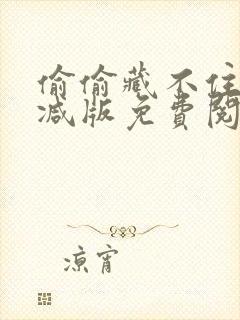 偷偷藏不住
减版免費閱
凉宵